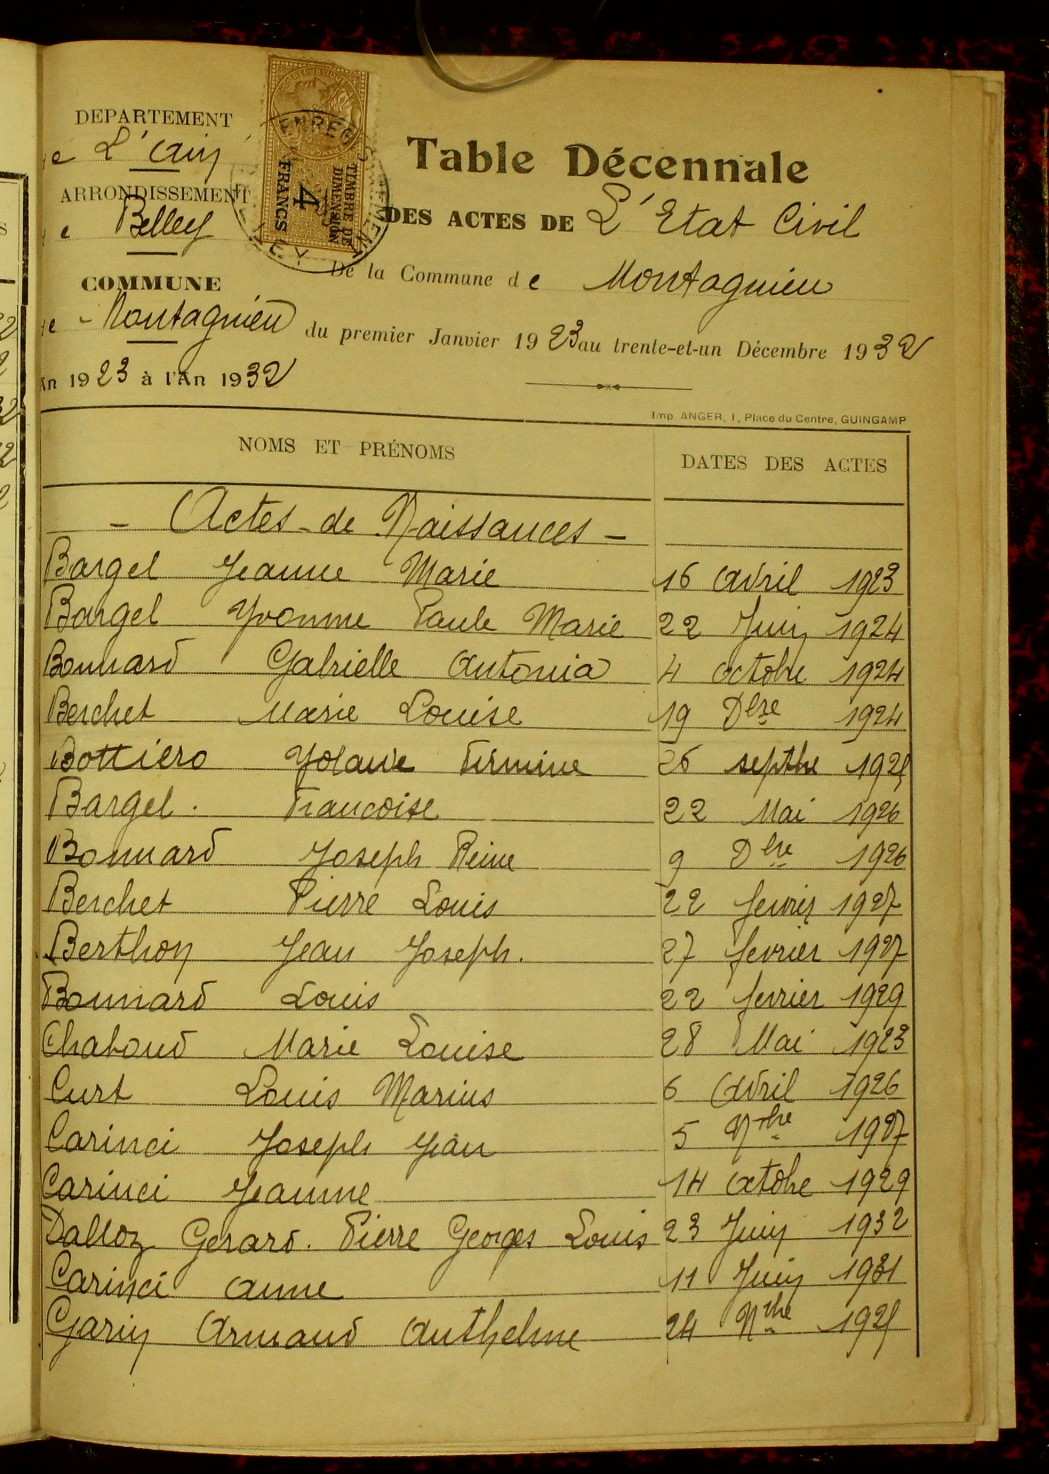 DEPARTEMENT
de L'Ain
ARRONDISSEMENT
de Belley
COMMUNE
de Montagnieu
An 1923 à l'An 1932
ENREG
TIMBRE DE
DIMENSION
4
FRANCS
Table Décennale
DES ACTES DE L'Etat Civil
De la Commune de Montagnieu
du premier Janvier 1923 au trente-et-un Décembre 1932
Imp. ANGER, 1, Place du Centre, GUINGAMP
NOMS ET PRÉNOMS DATES DES ACTES
- Actes de Naissances -
Bargel Jeanne Marie 16 avril 1923
Bargel Yvonne Paule Marie 22 Juin 1924
Bonnard Gabrielle Antonia 4 octobre 1924
Berchet Marie Louise 19 Dbre 1924
Bottiero Yolande Firmine 26 septbre 1925
Bargel. Francoise 22 Mai 1926
Bonnard Joseph Reine 9 Dbre 1926
Berchet Pierre Louis 22 fevrier 1927
Berthon Jean Joseph. 27 fevrier 1927
Bonnard Louis 22 fevrier 1929
Chaboud Marie Louise 28 Mai 1923
Curt Louis Marius 6 avril 1926
Carinci Joseph Jean 5 Nbre 1927
Carinci Jeanne 14 octobre 1929
Dalloz Gerard. Pierre Georges Louis 23 Juin 1932
Carinci Anne 11 Juin 1931
Garin Armand Anthelme 24 Nbre 1925